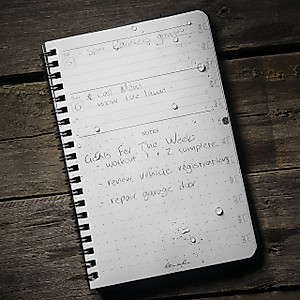 * call Mom
mow the lawn
NOTES
Goals For The Week:
- workout 1 & 2 complete
- review vehicle registration
- repair garage door